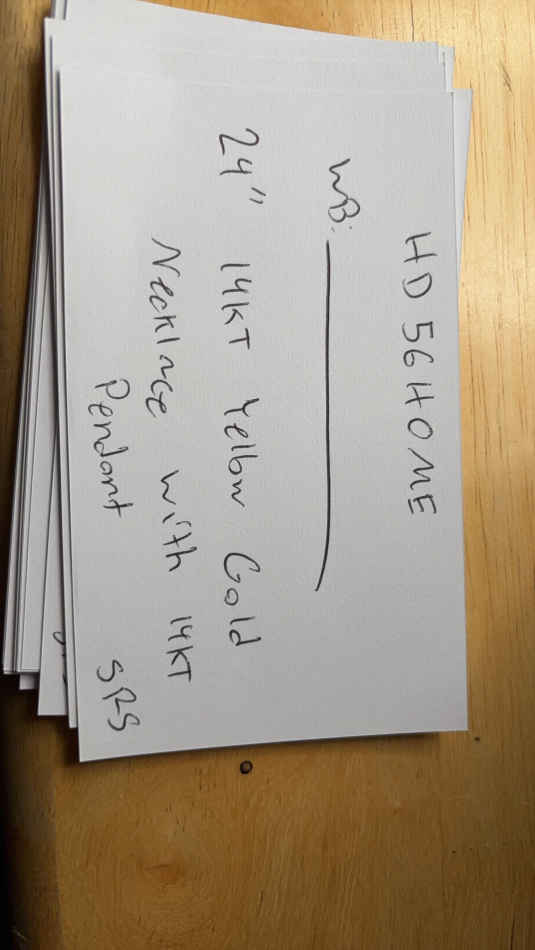 HD56HOME
WB:
24" 14KT Yellow Gold
Necklace with 14KT
Pendant
SRS